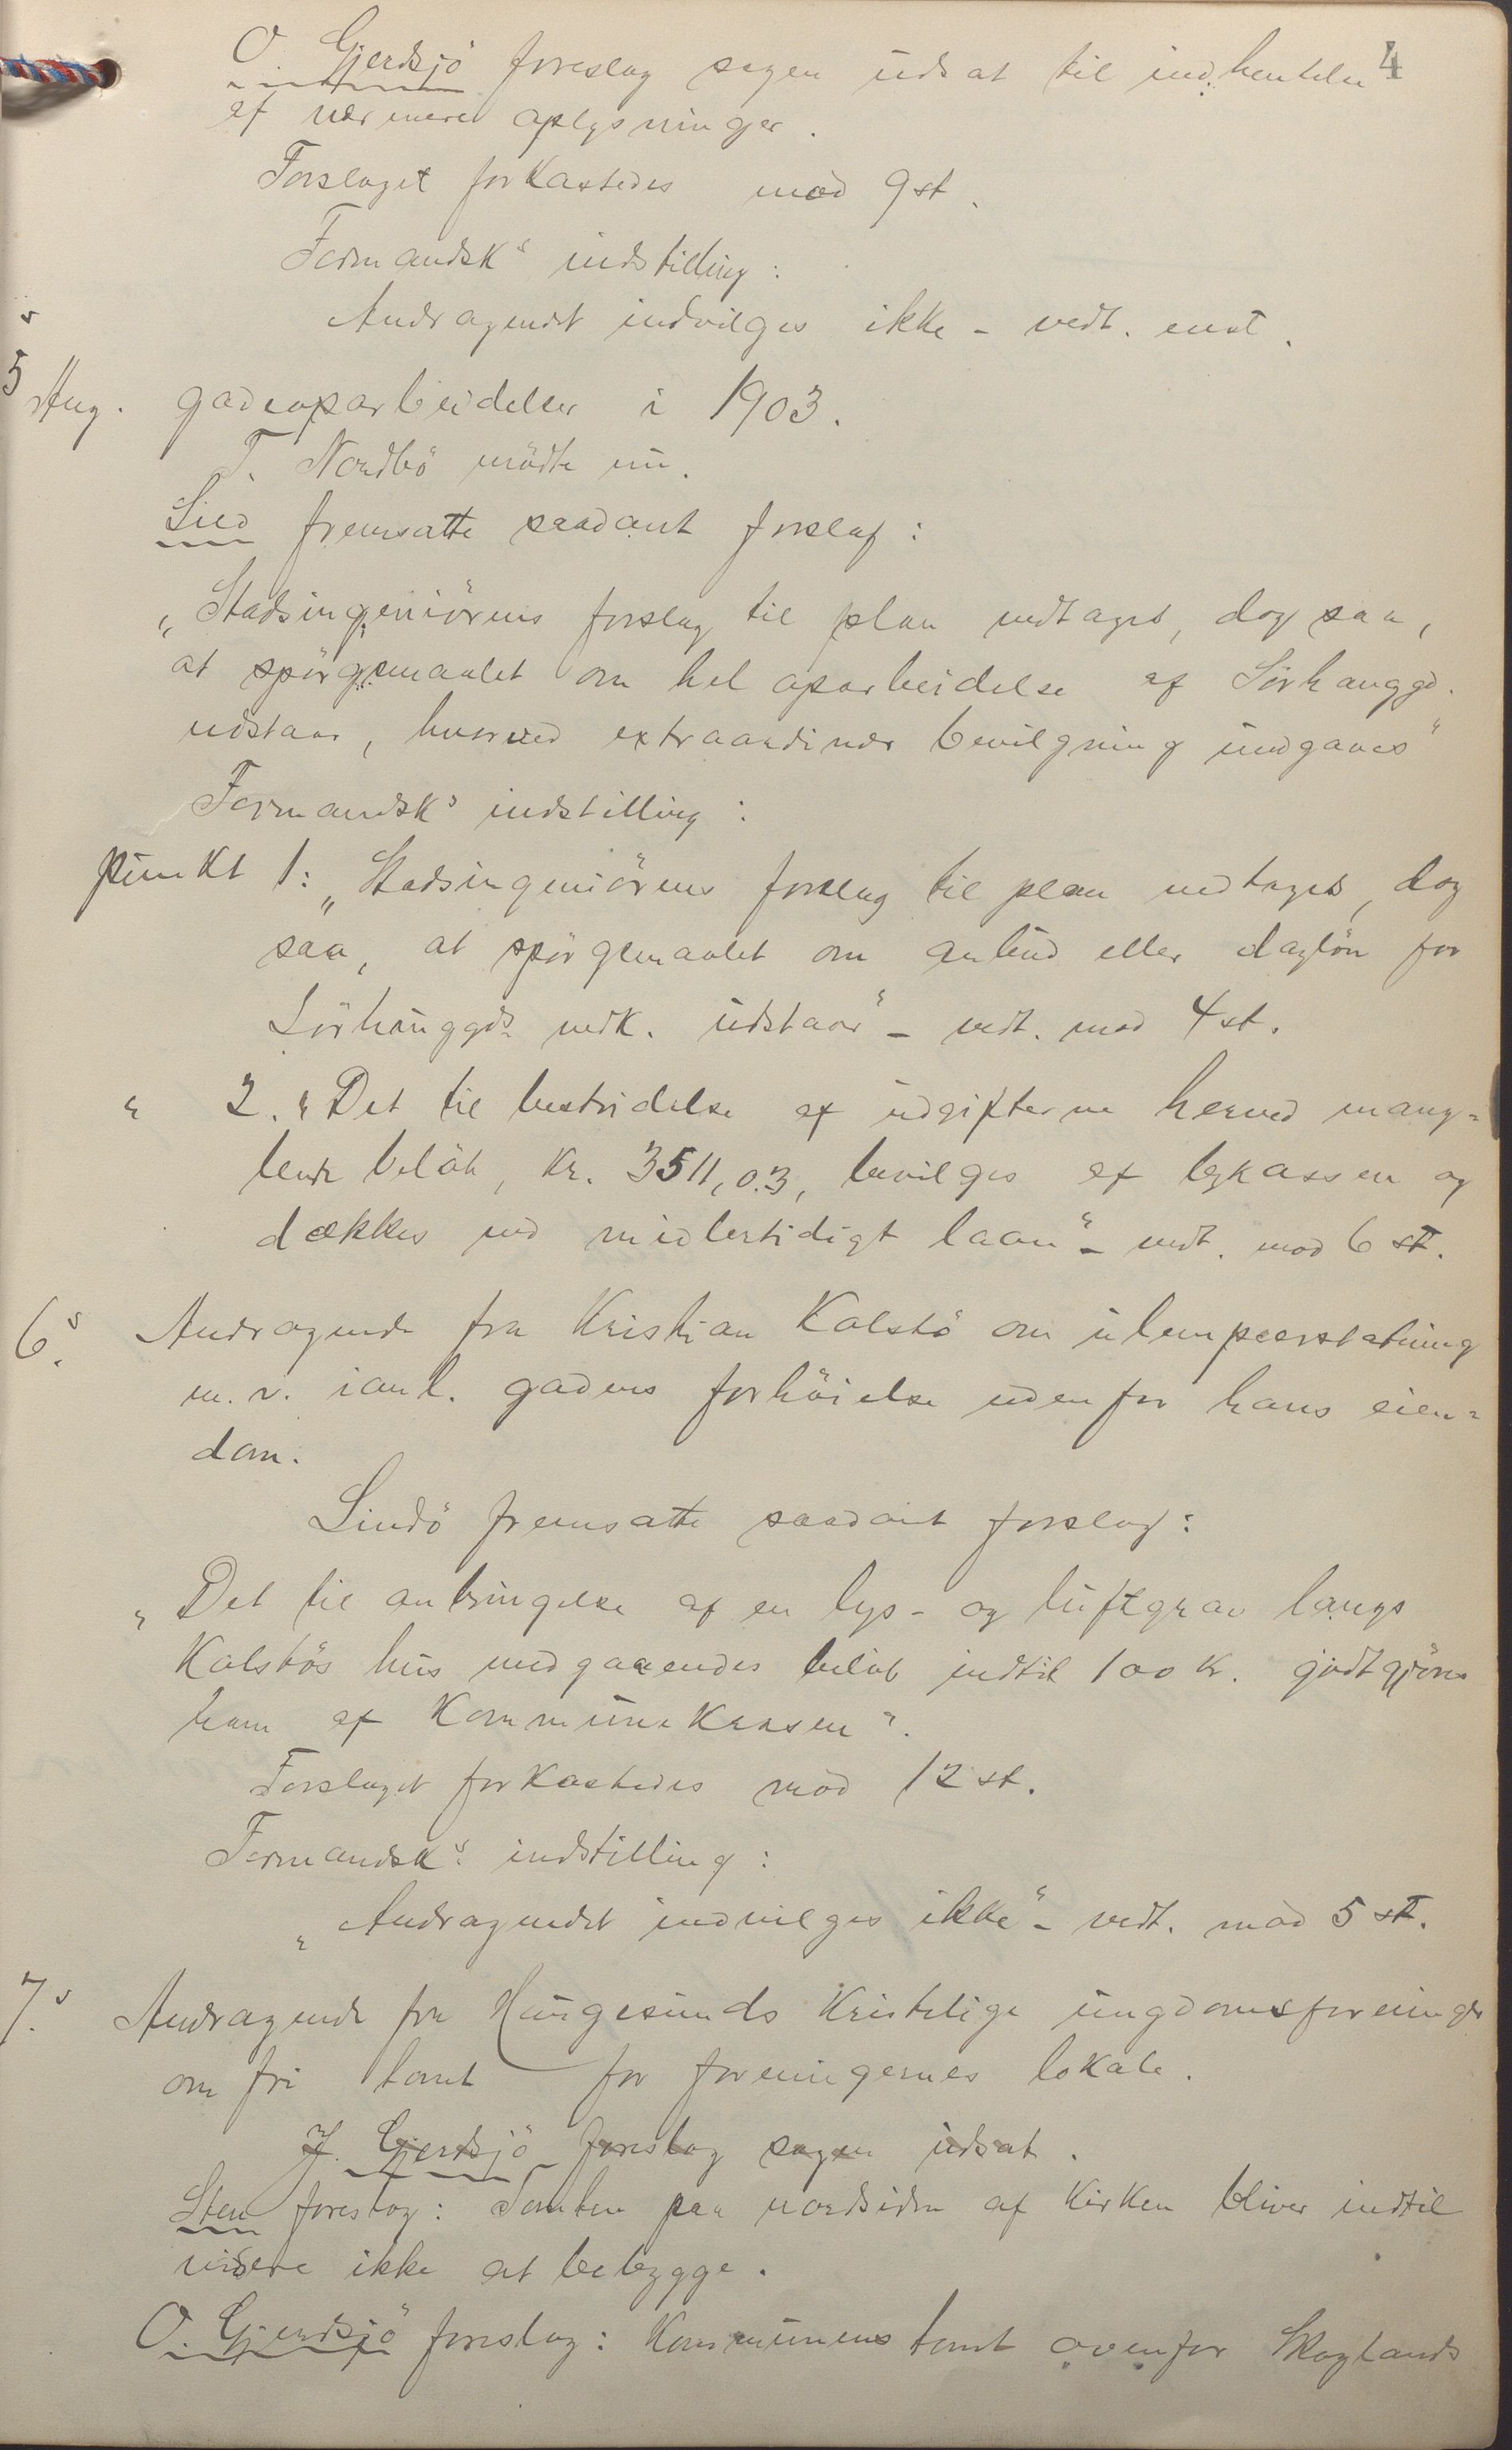 4
O. Gjerdsjö foreslog sagen udsat til indhentelse
af nærmere oplysninger.
Forslaget forkastedes mod 9 st.
Formandsk's indstilling:
Andragendet indvilges ikke - vedt. enst.
5s Ang. gadeoparbeidelser i 1903.
T. Nordbö mödte nu.
Lied fremsatte saadant forslag:
„Stadsingeniörens forslag til plan vedtages, dog saa,
at spörgsmaalet om hel oparbeidelse af Sörhauggd.
udstaar, hvorved extraordinær bevilgning undgaaes"
Formandsk's indstilling:
punkt 1: „Stadsingeniörens forslag til plan vedtages, dog
saa, at spörgsmaalet om anbud eller daglön for
Sörhauggds vedk. udstaar" - vedt. mod 4 st.
" 2. „Det til bestridelse af udgifterne herved mang=
lende belöb, kr. 3511,03, bevilges af bykassen og
dækkes ved midlertidigt laan" - vedt. mod 6 st.
6s. Andragende fra Kristian Kalstö om ulempeerstatning
m. v. ianl. gadens forhöielse udenfor hans eien=
dom.
Lindö fremsatte saadant forslag:
„Det til anbringelse af en lys- og luftgrav langs
Kalstös hus medgaaendes belöb indtil 100 kr. godtgjöres
ham af Kommunekassen".
Forslaget forkastedes mod 12 st.
Formandsk's indstilling:
„Andragendet indvilges ikke" - vedt. mod 5 st.
7s. Andragende fra Haugesunds Kristelige ungdomsforeninger
om fri tomt for foreningernes lokale.
J. Gjerdsjö foreslog sagen udsat.
Sten foreslog: Tomten paa nordsiden af Kirken bliver indtil
videre ikke at bebygge.
O. Gjerdsjö foreslog: Kommunens tomt ovenfor Skoglands